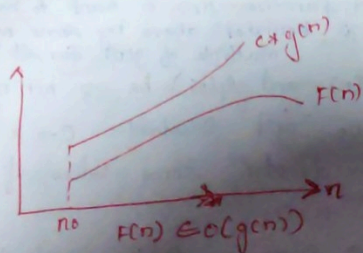 c*g(n)
F(n)
n
n0
F(n) ∈ O(g(n))